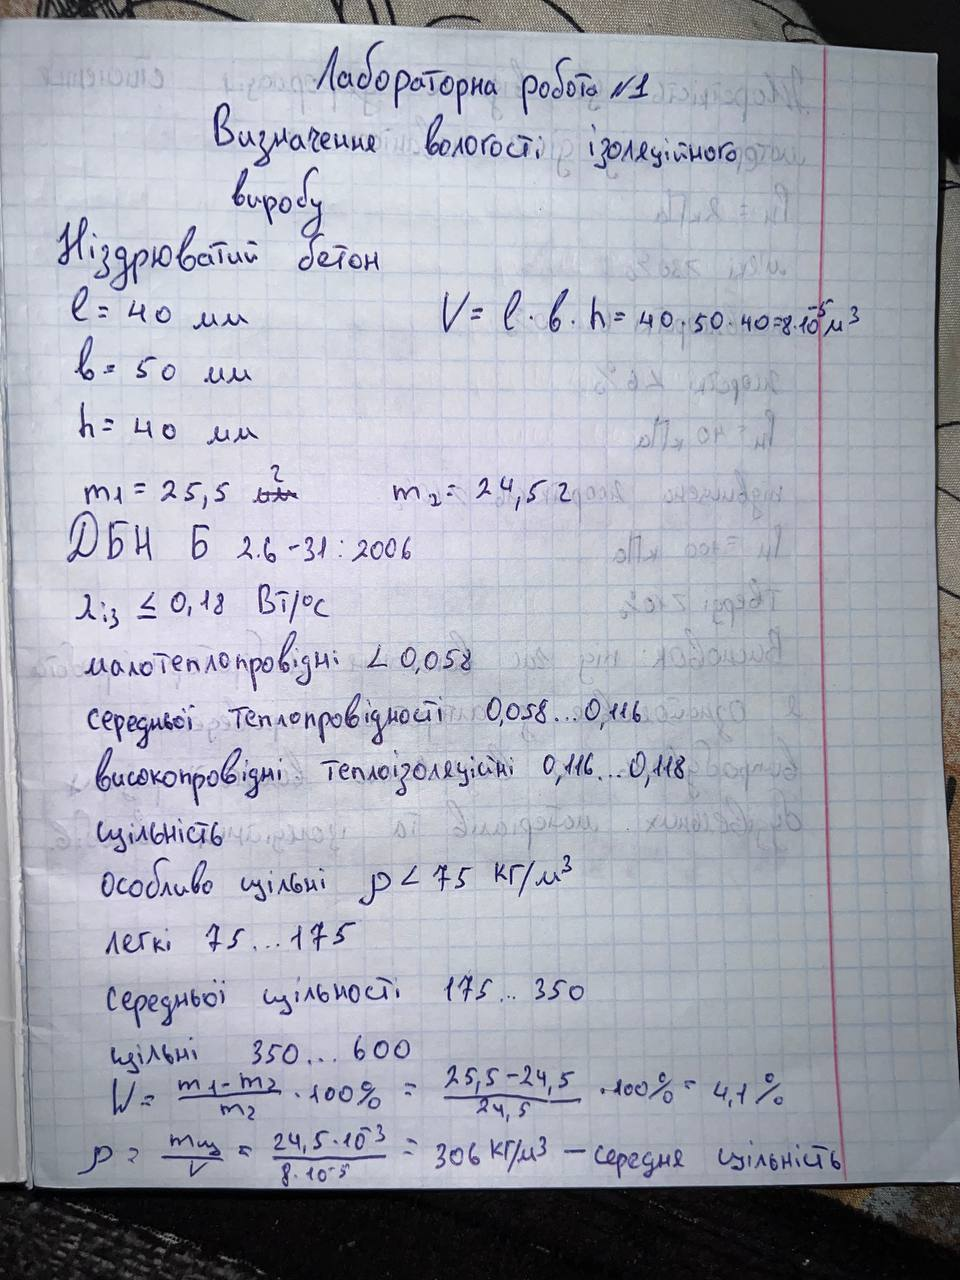 Лабораторна робота №1
Визначення вологості ізоляційного
виробу
Ніздрюватий бетон
l = 40 мм V = l · b · h = 40·50·40=8·10⁻⁵м³
b = 50 мм
h = 40 мм
m₁ = 25,5 г m₂ = 24,5 г
ДБН Б 2.6-31:2006
λіз ≤ 0,18 Вт/ос
малотеплопровідні < 0,058
середньої теплопровідності 0,058...0,116
високопровідні теплоізоляційні 0,116...0,118
щільність
особливо щільні ρ < 75 кг/м³
легкі 75...175
середньої щільності 175...350
щільні 350...600
W = (m₁-m₂)/m₂ · 100% = (25,5-24,5)/24,5 · 100% = 4,1%
ρ = mщ/V = 24,5·10⁻³/8·10⁻⁵ = 306 кг/м³ – середня щільність